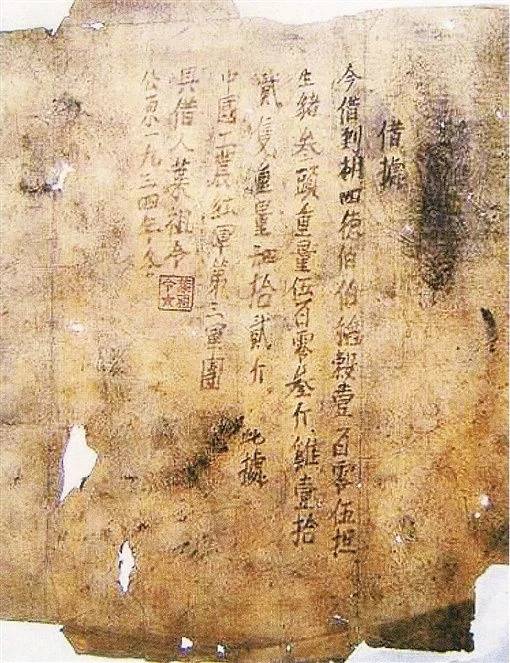 借據
今借到胡四德伯伯稻穀壹百零伍担
生豬叁頭重量伍百零叁斤雞壹拾
貳隻重量肆拾貳斤。此據
中國工農紅軍第三軍團
具借人葉祖令
公原一九三四年
葉祖令